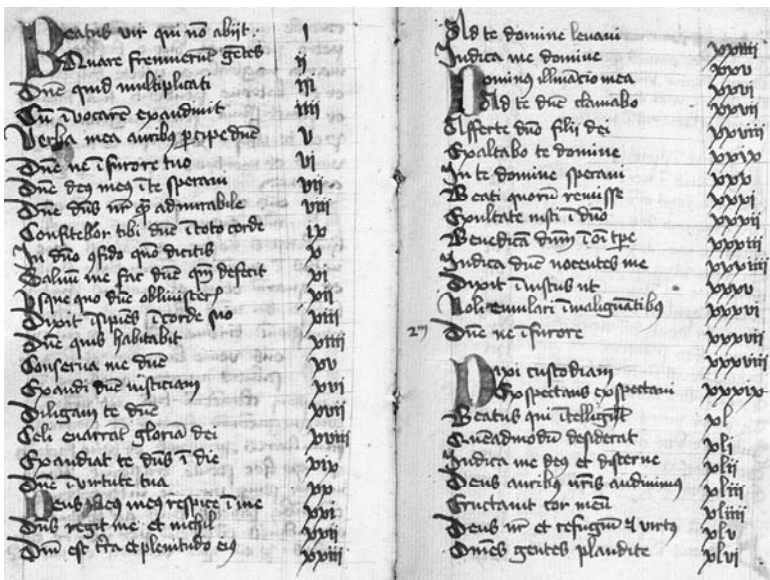 Beatus vir qui nō abijt i
Quare fremuerūt gētes ij
Dn̄e quid multiplicati iij
Cū īvocarē exaudivit iiij
Verba mea auribꝰ ꝑcipe dn̄e v
Dn̄e ne ī furore tuo vi
Dn̄e deꝰ meꝰ ī te speraui vij
Dn̄e dn̄s nr̄ admirabile viij
Confitebor tibi dn̄e ī toto corde ix
In dn̄o ꝯfido quō dicitis x
Saluū me fac dn̄e qm̄ defecit xi
Vsqꝫ quo dn̄e xij
Dixit īsipiēs ī corde suo xiij
Dn̄e quis habitabit xiiij
Conserua me dn̄e xv
Exaudi dn̄e iusticiam xvi
Diligam te dn̄e xvij
Celi enarrāt gloriā dei xviij
Exaudiat te dn̄s ī die xix
Dn̄e ī virtute tua xx
Deus deꝰ meꝰ respice ī me xxi
Dn̄s regit me et nichil xxij
Dn̄i est tr̄a et plenitudo eiꝰ xxiij
Ad te domine leuaui
Iudica me domine xxiiij
Dominus illūacio mea xxv
Ad te dn̄e clamabo xxvi
Afferte dn̄o filij dei xxvij
Exaltabo te domine xxviij
In te domine speraui xxix
Beati quorū remisse xxx
Exultate iusti ī dn̄o xxxi
Benedicā dn̄m ī oī tp̄e xxxij
Iudica dn̄e nocentes me xxxiij
Dixit īiustus ut xxxiiij
Noli emulari ī malignātibꝰ xxxv
Dn̄e ne ī furore xxxvi
xxxvij
Dixi custodiam xxxviij
Expectans expectaui xxxix
Beatus qui ītelligit xl
Quēadmodū desiderat xli
Iudica me deꝰ et discerne xlij
Deus auribꝰ nr̄is audiuimus xliij
Eructauit cor meū xliiij
Deus nr̄ et refugiū virtꝰ xlv
Om̄es gentes plaudite xlvi